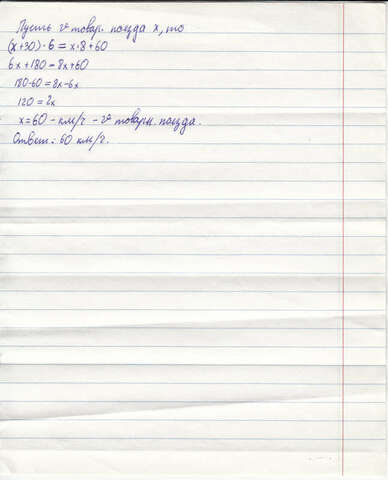 Пусть v товар. поезда x, то
(x+30)·6 = x·8+60
6x+180=8x+60
180-60=8x-6x
120=2x
x=60 - км/ч - v товарн. поезда.
Ответ: 60 км/ч.